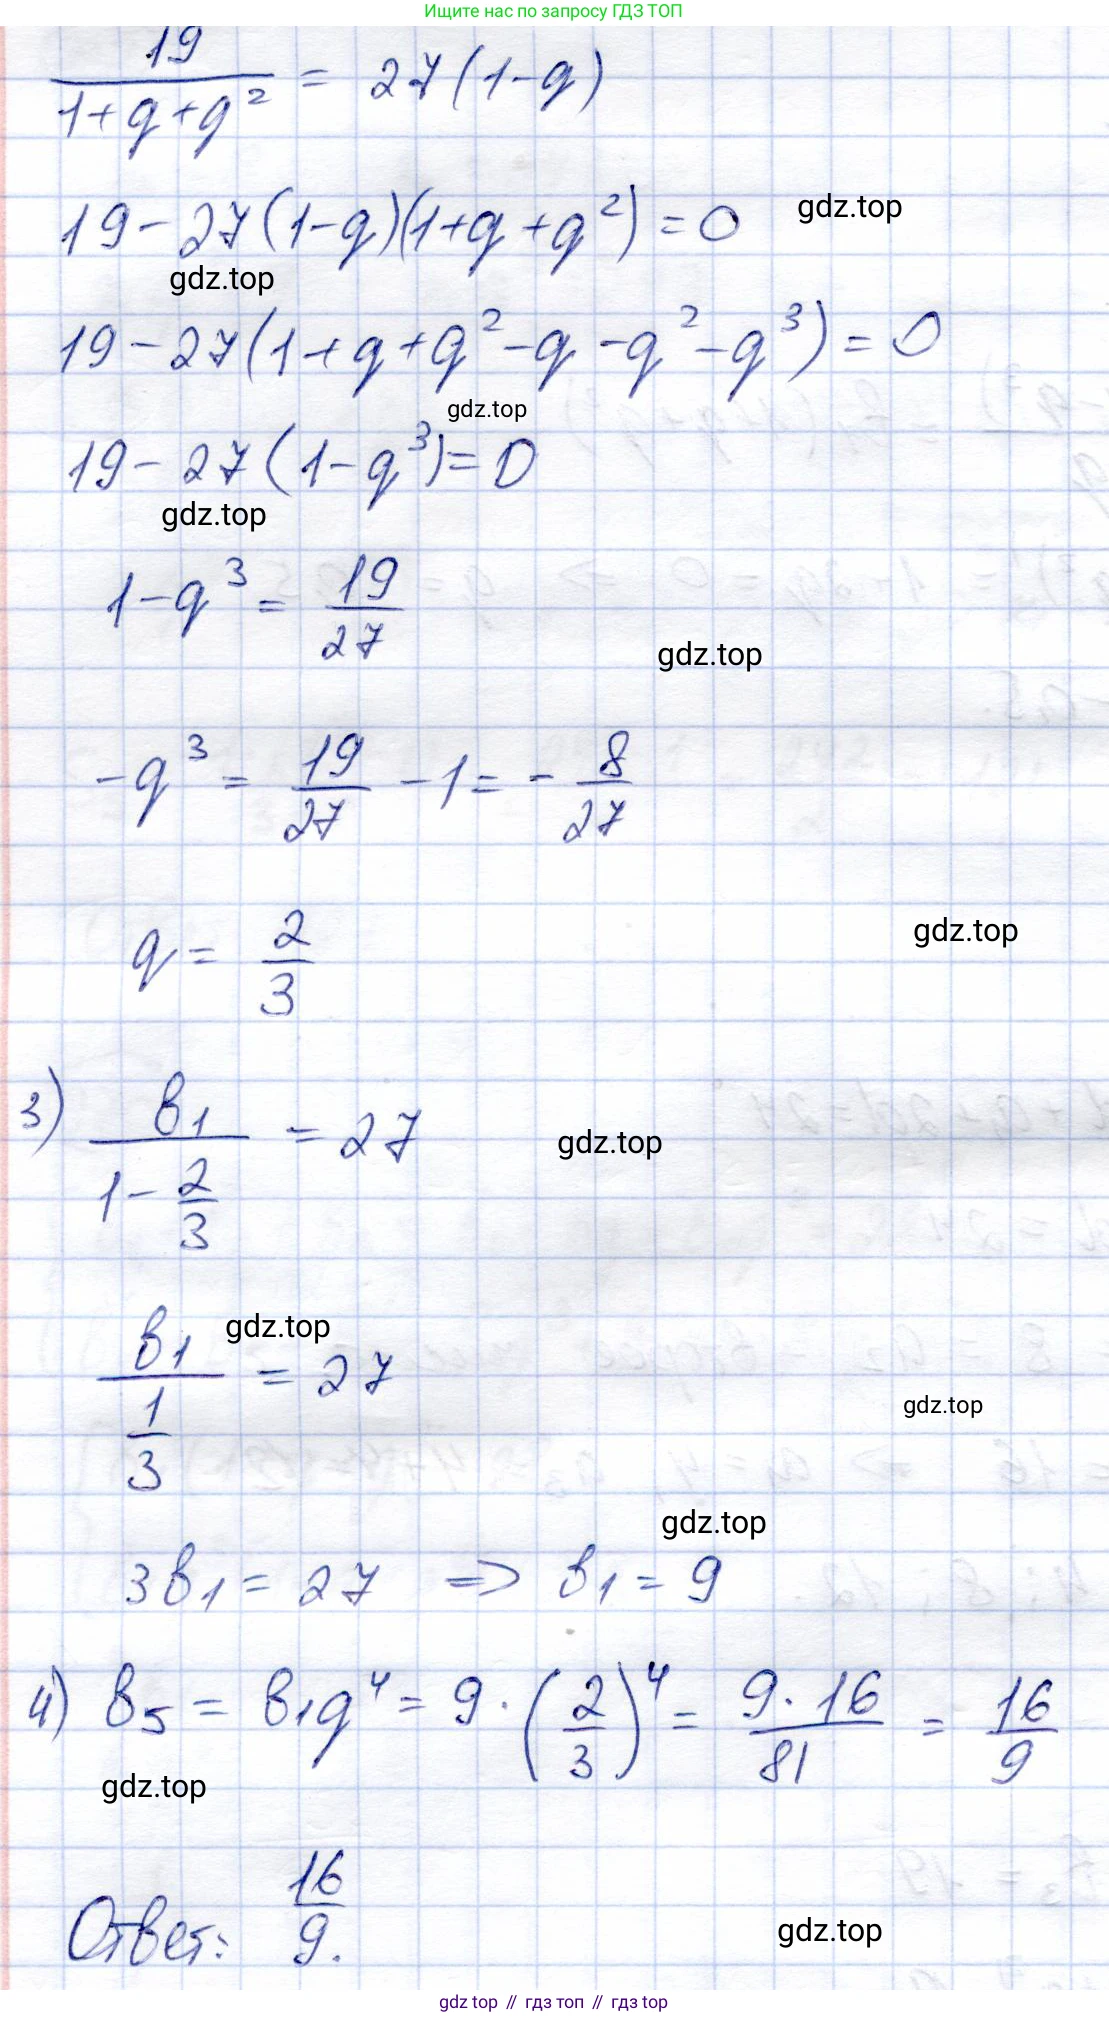 Ищите нас по запросу ГДЗ ТОП
19/(1+q+q²) = 27(1-q)
19-27(1-q)(1+q+q²)=0
gdz.top
gdz.top
19-27(1+q+q²-q-q²-q³)=0
gdz.top
19-27(1-q³)=0
gdz.top
1-q³ = 19/27
gdz.top
-q³ = 19/27 -1 = - 8/27
q = 2/3
gdz.top
3) в₁/(1-2/3) = 27
gdz.top
gdz.top
в₁/(1/3) = 27
gdz.top
gdz.top
3в₁ = 27 => в₁ = 9
4) в₅ = в₁q⁴ = 9·(2/3)⁴ = 9·16/81 = 16/9
gdz.top
Ответ: 16/9.
gdz.top
gdz top // гдз топ // гдз top